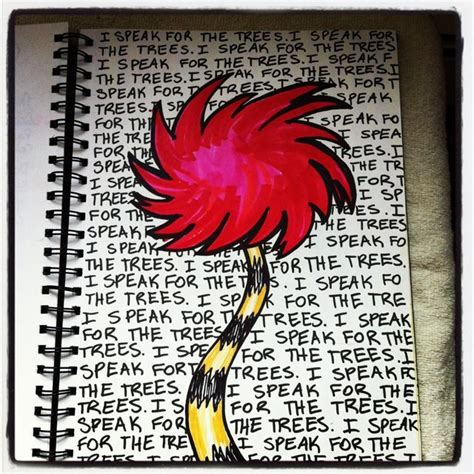 I SPEAK FOR THE TREES. I SPEAK FOR
THE TREES. I SPEAK FOR THE TREES
I SPEAK FOR THE TREES. I SPEAK F
THE TREES. I SPEAK FOR THE TREES. I
SPEAK FOR THE SPEAK
FOR THE TREES
I SPEA I SPEA
FOR TH
TREES.
I SPEAK
THE TREES
FOR THE TREES. I
TREES. I
THE TREES. I SPEAK FO
THE TREES. I SPEAK FOR THE TREES.
TREES. I SPEAK FO
THE TREES. I SPEAK FOR THE TRE
I SPEAK FOR THE TREES. I SPEAK
FOR THE TREES. I SPEAK FOR THE
TREES. I SPEAK FOR THE TREES. I
SPEAK FOR I SPEAK FOR THE
TREES. I SPEAK FOR THE TREES. I
SPEAK FOR THE TREES. I SPEAK
FOR THE TREES. I SPEAK FOR THE